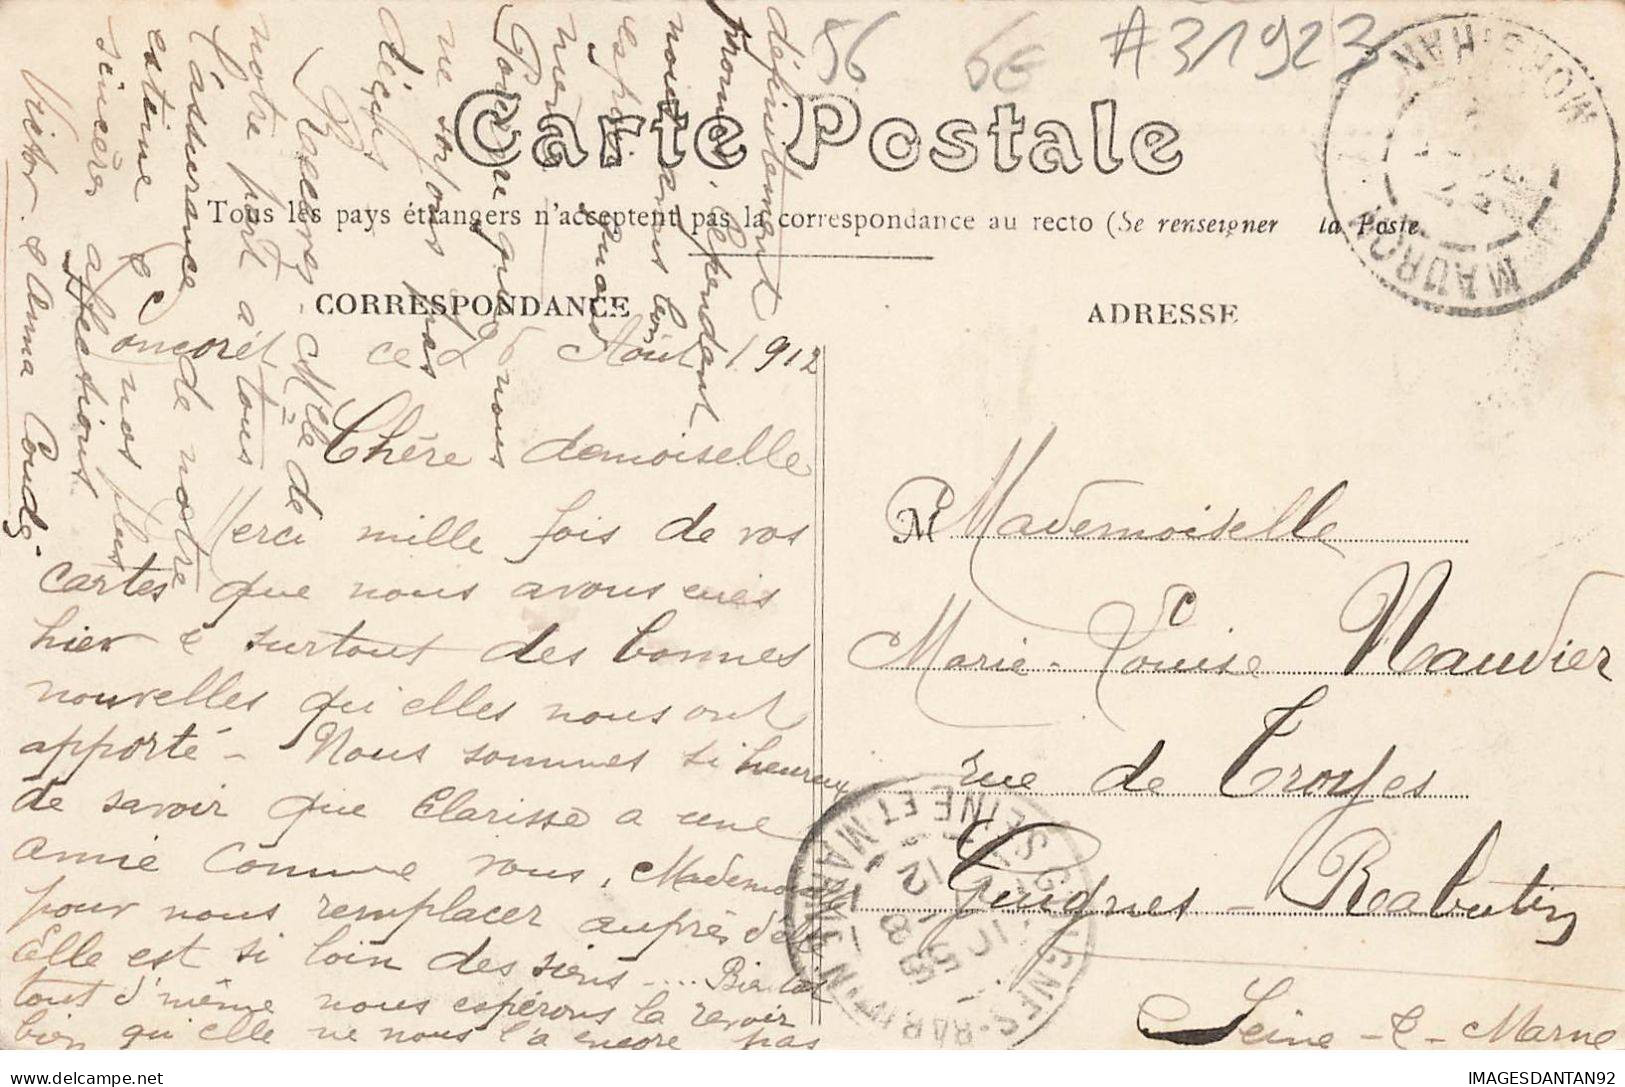 56 6E #31923
Carte Postale
Tous les pays étrangers n'acceptent pas la correspondance au recto (Se renseigner la Poste
CORRESPONDANCE
ADRESSE
MAURON
MORBIHAN
Concoret ce 26 Août 1912
Chère demoiselle
Merci mille fois de vos
cartes que nous avons eues
hier & surtout des bonnes
nouvelles qu'elles nous ont
apporté - Nous sommes si heureux
de savoir que Clarisse a une
amie comme vous, Mademoiselle
pour nous remplacer auprès d'elle
Elle est si loin des siens .... Bientôt
tout d'même nous espérons la revoir
bien qu'elle ne nous l'a encore pas
définitivement
promis, cependant
nous avons bon
espoir
Pourvu que nous
ne soyons pas
déçus
Recevez, Melle de
notre part à tous
l'assurance de notre
estime & nos plus
sincères affections
Victor & Anna Coudé
M
Mademoiselle
Marie-Louise Naudier
rue de Troyes
Guignes-Rabutin
Seine-&-Marne
GUIGNES-RABUTIN
SEINE ET MARNE
IMAGESDANTAN92